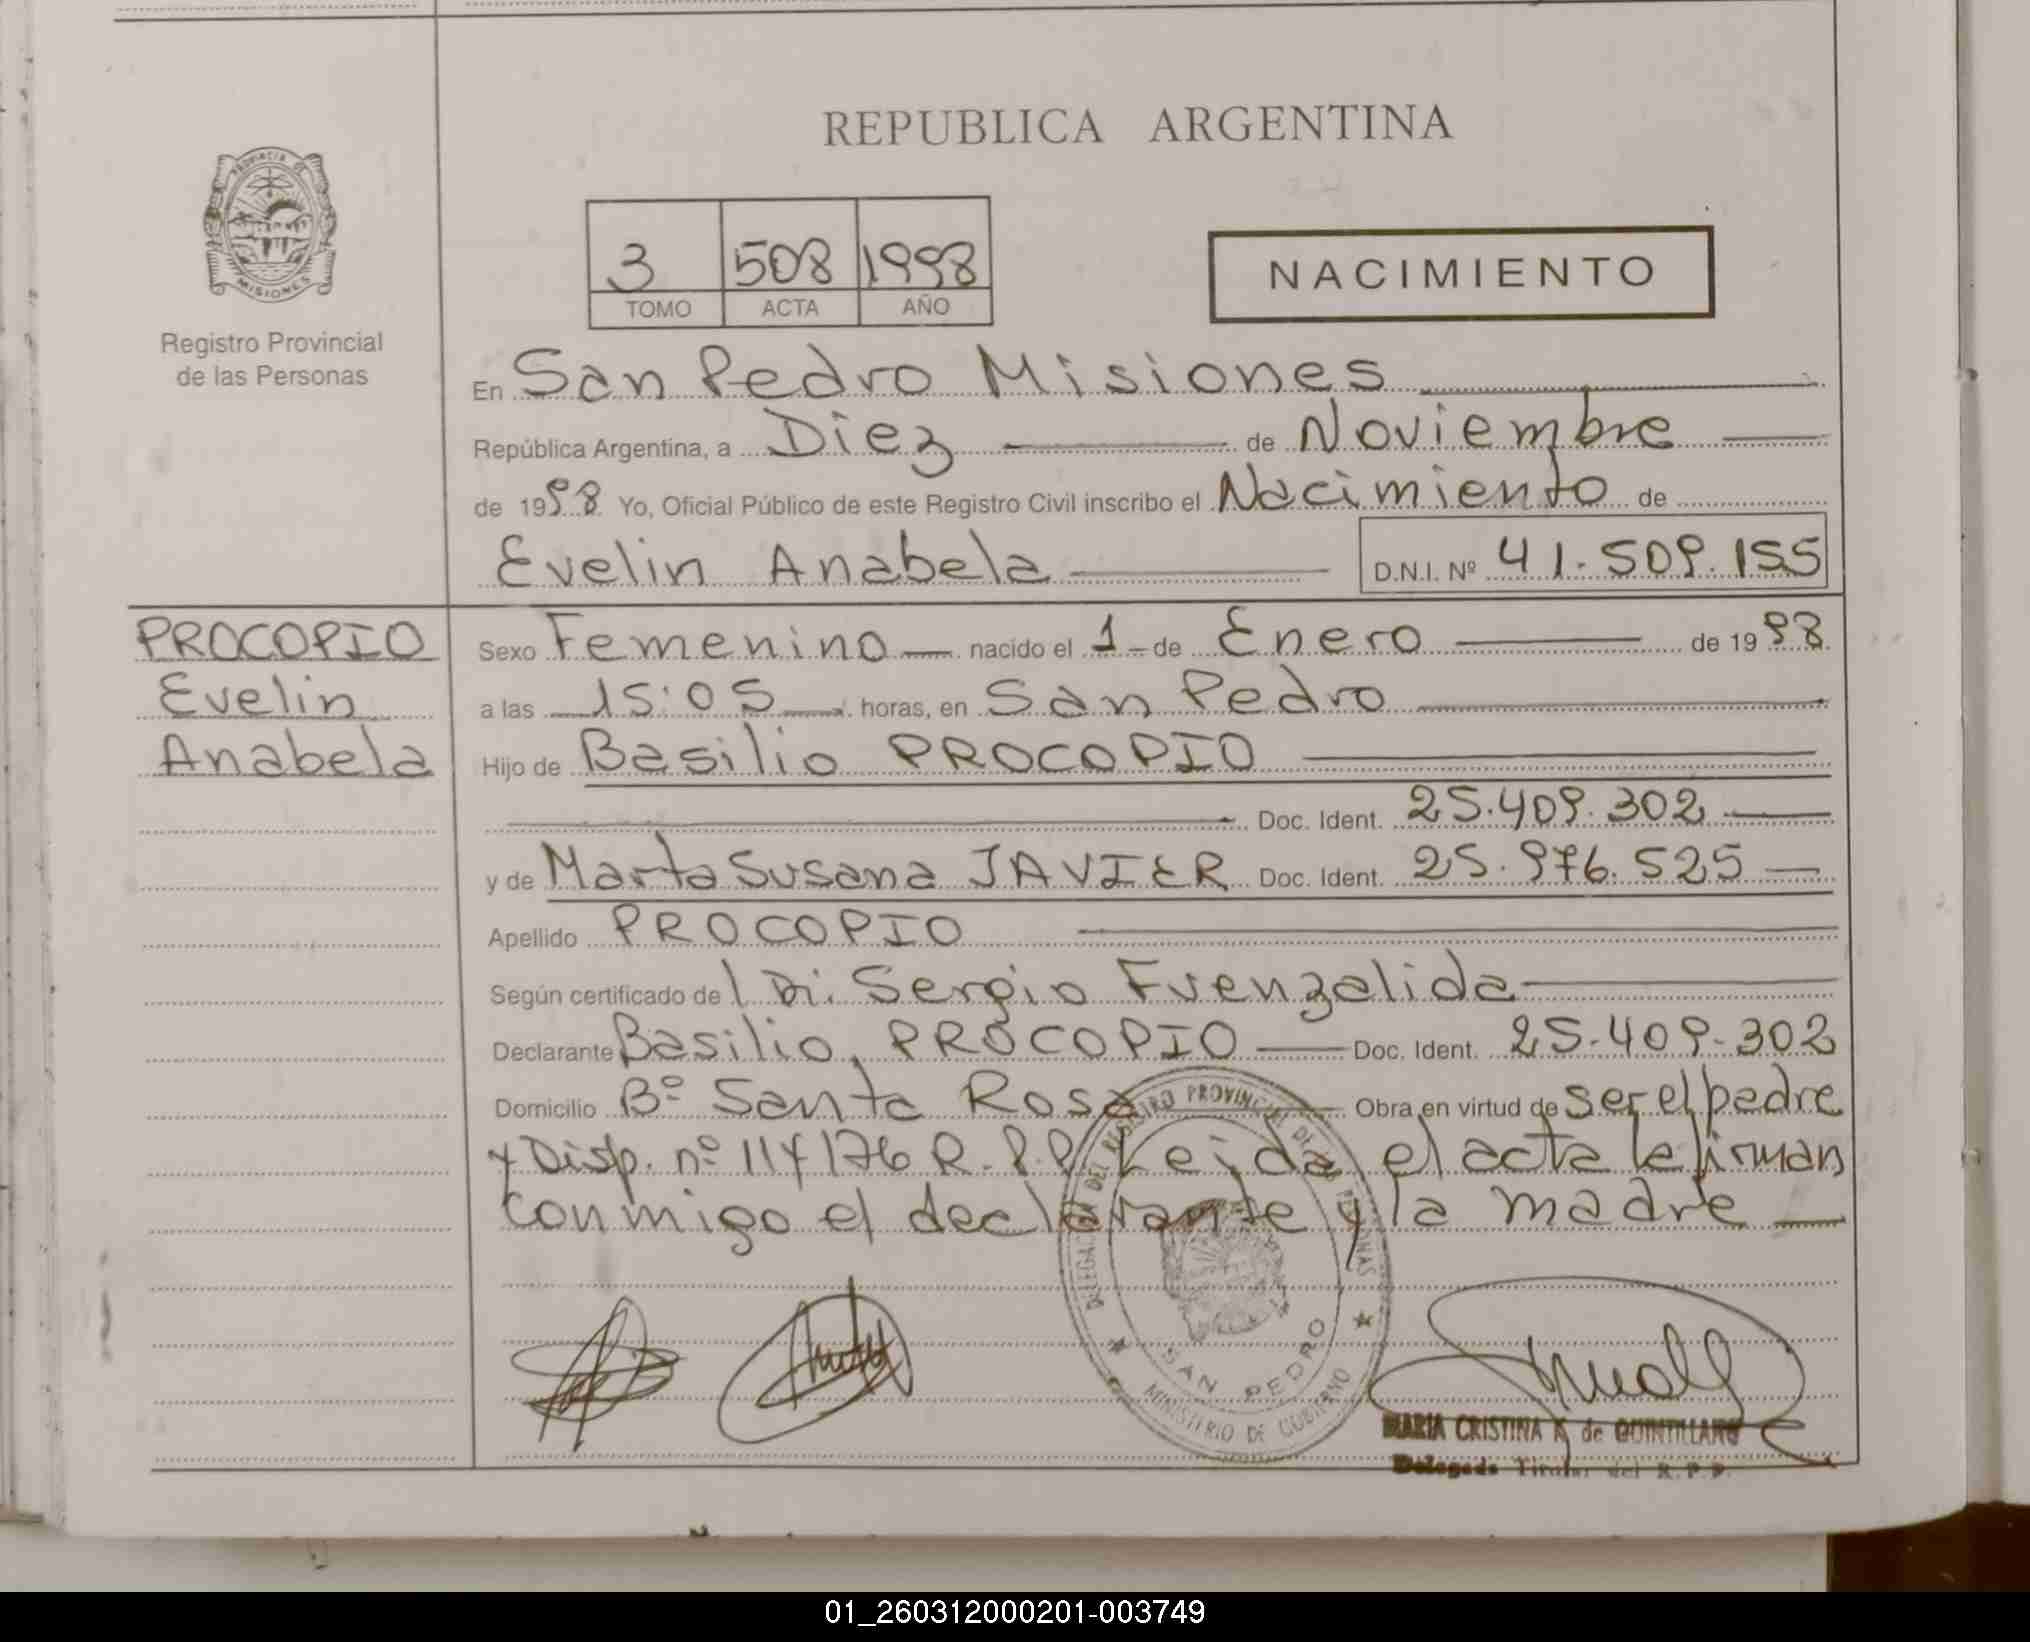 REPUBLICA ARGENTINA
PROVINCIA DE
MISIONES
Registro Provincial
de las Personas
3 508 1998
TOMO ACTA AÑO
NACIMIENTO
En San Pedro Misiones
República Argentina, a Diez de Noviembre
de 1998 Yo, Oficial Público de este Registro Civil inscribo el Nacimiento de
Evelin Anabela D.N.I. Nº 41.509.155
PROCOPIO
Evelin
Anabela
Sexo Femenino nacido el 1 de Enero de 1998
a las 15:05 horas, en San Pedro
Hijo de Basilio PROCOPIO
Doc. Ident. 25.409.302
y de Marta Susana JAVIER Doc. Ident. 25.976.525
Apellido PROCOPIO
Según certificado de Sergio Fuenzalida
Declarante Basilio PROCOPIO Doc. Ident. 25.409.302
Domicilio Bº Santa Rosa Obra en virtud de ser el padre
y Disp. nº 114/76 R.P.P. Leida el acta la firman
conmigo el declarante y la madre
DELEGACION DEL REGISTRO PROVINCIAL DE LAS PERSONAS
SAN PEDRO
MINISTERIO DE GOBIERNO
MARIA CRISTINA K. de QUINTILLANO
Delegada Titular del R.P.P.
01_260312000201-003749